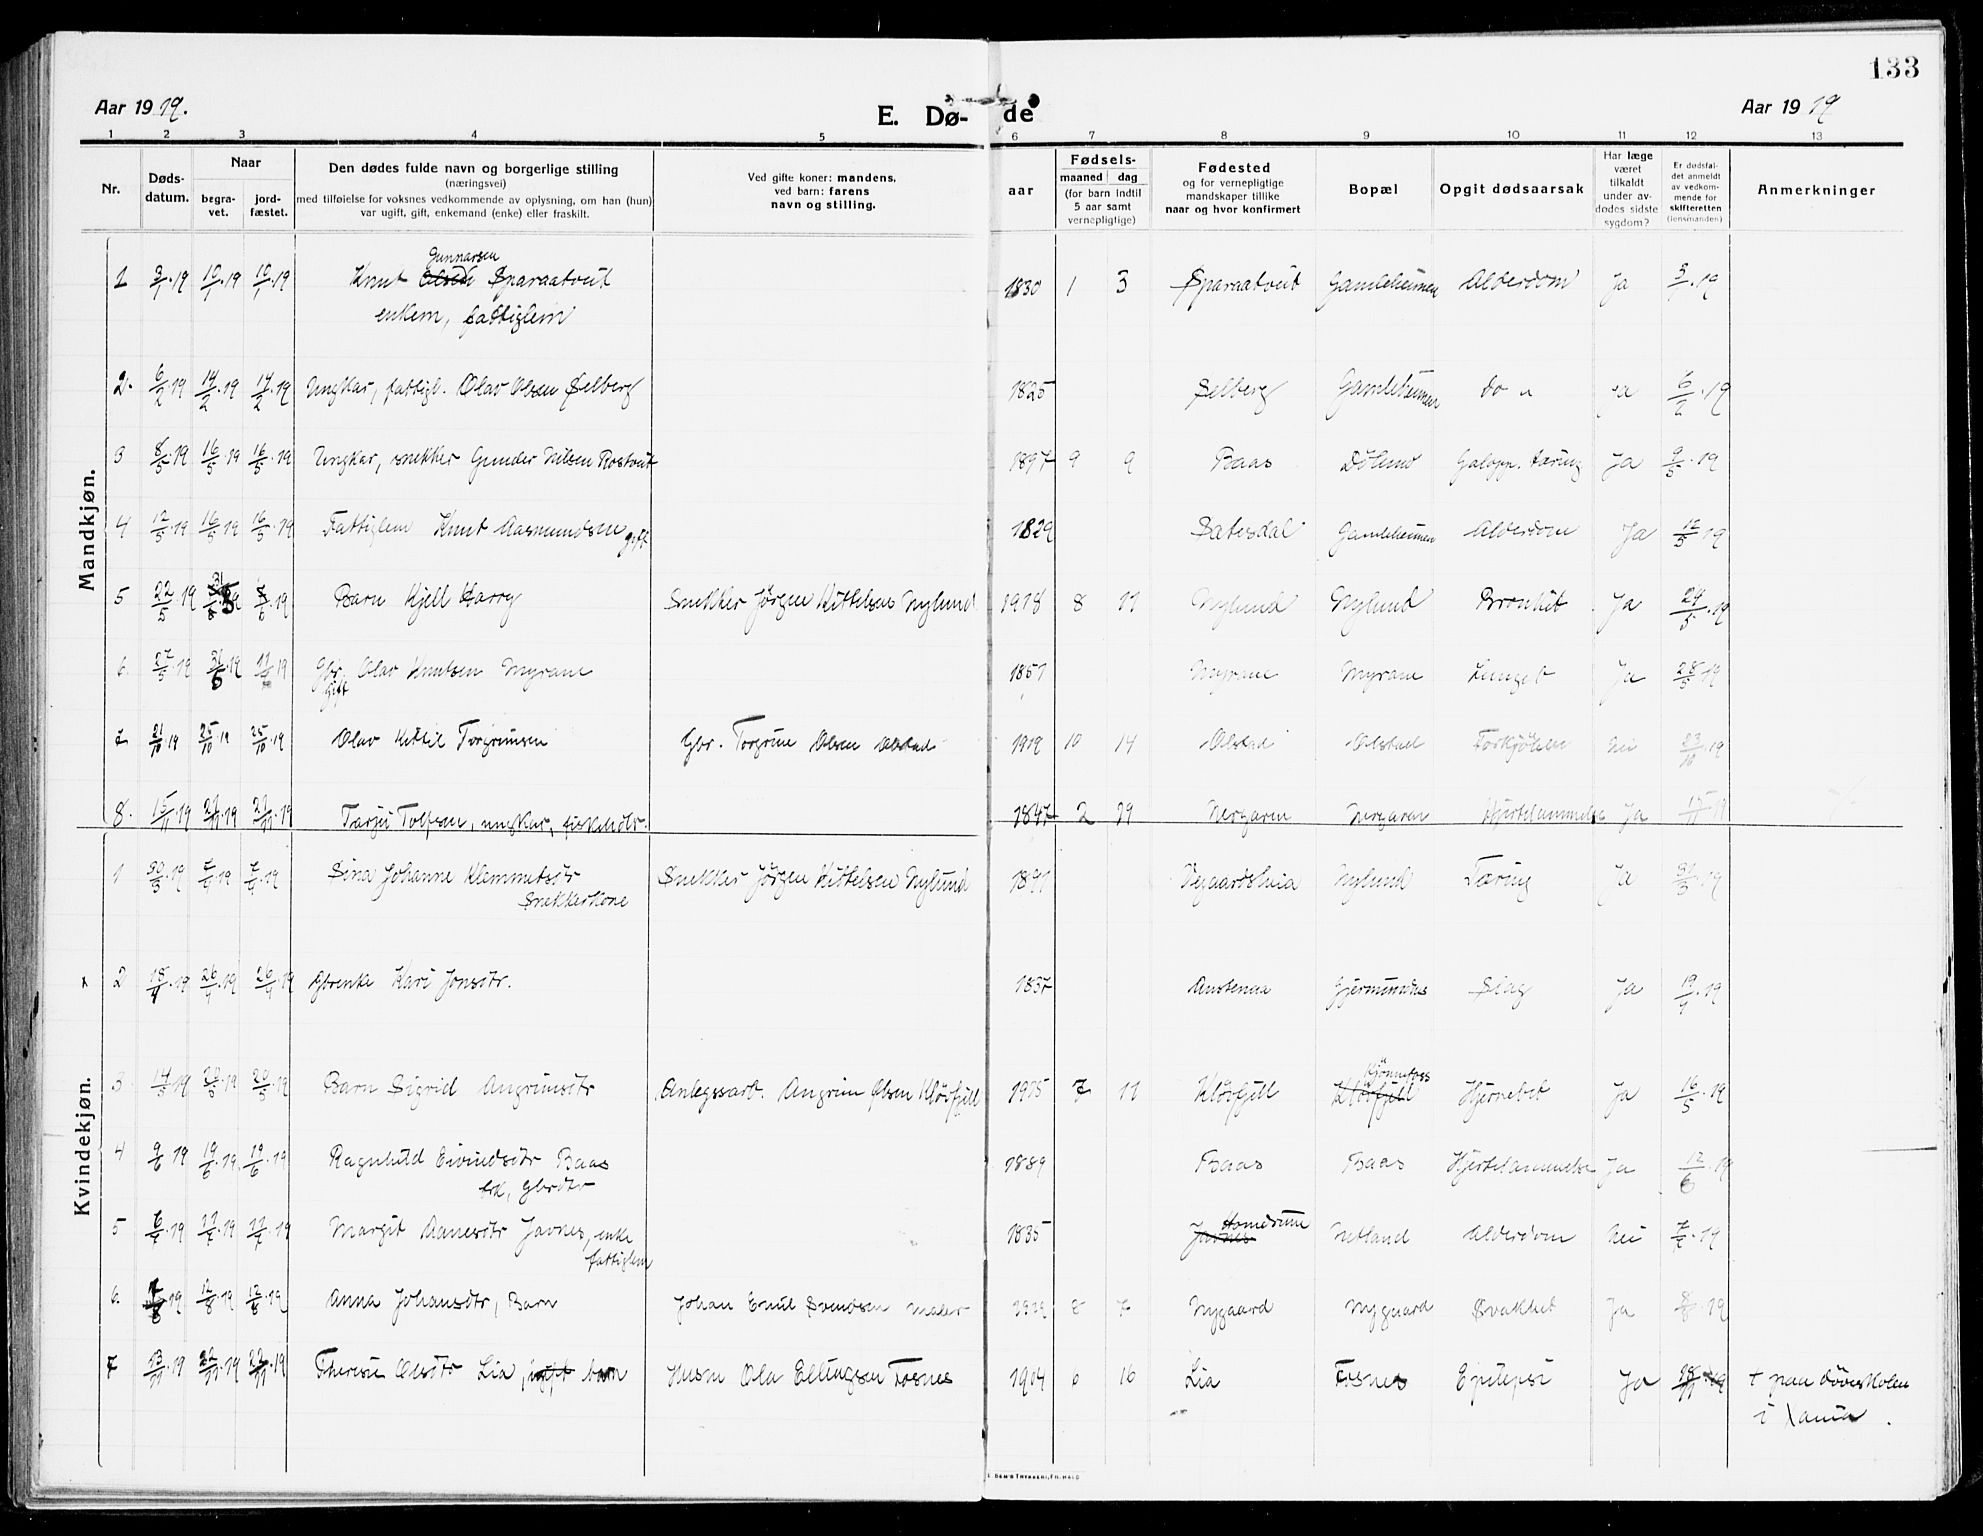 133
Aar 1919.
E. Dø-
de
Aar 1919
1 2 3 4 5 6 7 8 9 10 11 12 13
Nr.
Døds-
datum.
Naar
begra-
vet.
jord-
fæstet.
Den dødes fulde navn og borgerlige stilling
(næringsvei)
med tilføielse for voksnes vedkommende av oplysning, om han (hun)
var ugift, gift, enkemand (enke) eller fraskilt.
Ved gifte koner: mandens,
ved barn: farens
navn og stilling.
Fødsels-
aar
maaned dag
(for barn indtil
5 aar samt
vernepligtige)
Fødested
og for vernepligtige
mandskaper tillike
naar og hvor konfirmert
Bopæl
Opgit dødsaarsak
Har læge
været
tilkaldt
under av-
dødes sidste
sygdom?
Er dødsfal-
det anmeldt
av vedkom-
mende for
skifteretten
(lensmanden)
Anmerkninger
Mandkjøn.
Gunnarsen
1 3/1.19 10/1.19 10/1.19 Knut Olsen Sparaatveit 1830 1 3 Sparaatveit Gamleheimen Alderdom Ja 3/1.19
enkem, fattiglem
2. 6/2.19 14/2.19 14/2.19 Ungkar, fattigl. Olav Olsen Selberg 1825 Selberg Gamleheimen do " ja 6/2.19
3 8/5.19 16/5.19 16/5.19 Ungkar, snekker Gunder Nilsen Rostveit 1897 9 9 Baas Galopp. tæring Ja 9/5.19
4 12/5.19 16/5.19 16/5.19 Fattiglem Knut Aasmundsen gift 1829 Satesdal Gamleheimen Alderdom Ja 12/5.19
5 22/5.19 31/5.19 Barn Kjell Harry Snekker Jörgen Kittelsen Nylund 1918 8 11 Nylund Nylund Bronkit Ja 24/5.19
6. 27/5.19 Gbr. Olav Knutsen Myrane 1857 Myrane Myrane Lunget Ja 28/5.19
Gift
7 21/10.19 25/10.19 25/10.19 Olav Kittil Torgrimsen Gbr. Torgrim Olsen Olstad 1919 10 14 Olstad Olstad Forkjölese Nei 23/10.19
8. 15/11.19 21/11.19 21/11.19 Tarjei Tolfsen, ungkar, 1847 2 19 Nergaren Nergaren Hjertelammelse Ja 17/11.19
Kvindekjøn.
1 30/3.19 7/4.19 7/4.19 Sina Johanne Klemmetsdtr Snekker Jörgen Kittelsen Nylund 1891 Vegaardsheia Nylund Tæring Ja 31/3.19
Snekkerkone
x 2 18/4.19 26/4.19 26/4.19 Gbrenke Kari Jonsdtr. 1837 Austenaa Gjermundnes Slag Ja 19/4.19
3 14/5.19 20/5.19 20/5.19 Barn Sigrid Angrimsdtr Anlegsarb. Angrim Olsen Klövfjell 1915 7 11 Klövfjell Klövfjell Hjernebet Ja 16/5.19
4 9/6 19 19/6.19 19/6.19 Ragnhild Eivindsdtr Baas 1889 Baas Baas Hjertelammelse Ja 12/6.19
frk, gbrdtr
Homdrum
5 6/7.19 11/7.19 11/7.19 Margit Aanesdtr Javnes, enke 1835 Javnes Netland Alderdom Nei 7/7.19
fattiglem
6. 7/8.19 12/8.19 12/8.19 Anna Johansdtr, Barn Johan Emil Svendsen maler 1919 8 7 Nygaard Nygaard Svakhet Ja 8/8.19
7 13/11.19 22/11.19 22/11.19 Therese Olsdtr Lia, ugift barn Husm Ola Ellingsen Fosnes 1904 6 16 Lia Fosnes Epilepsi Ja 18/11.19 + paa Døveskolen
i Xania.